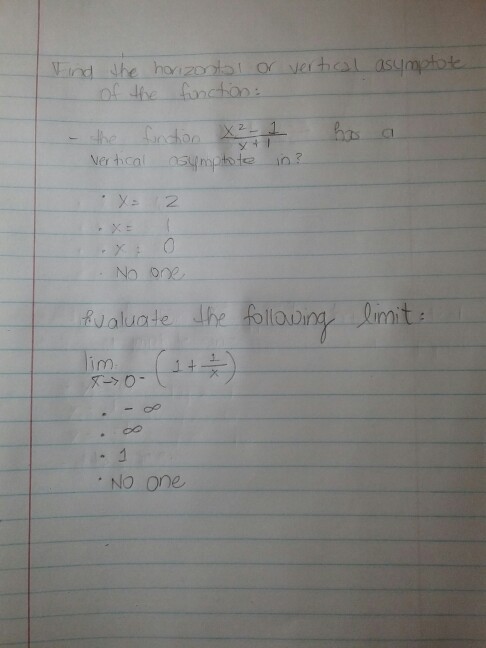 Find the horizontal or vertical asymptote
of the function:
- the function x²-1/x+1 has a
vertical asymptote in?
· x = 2
· x = 1
· x = 0
· No one
Evaluate the following limit:
lim x→0⁻ (1 + 1/x)
· - ∞
· ∞
· 1
· No one